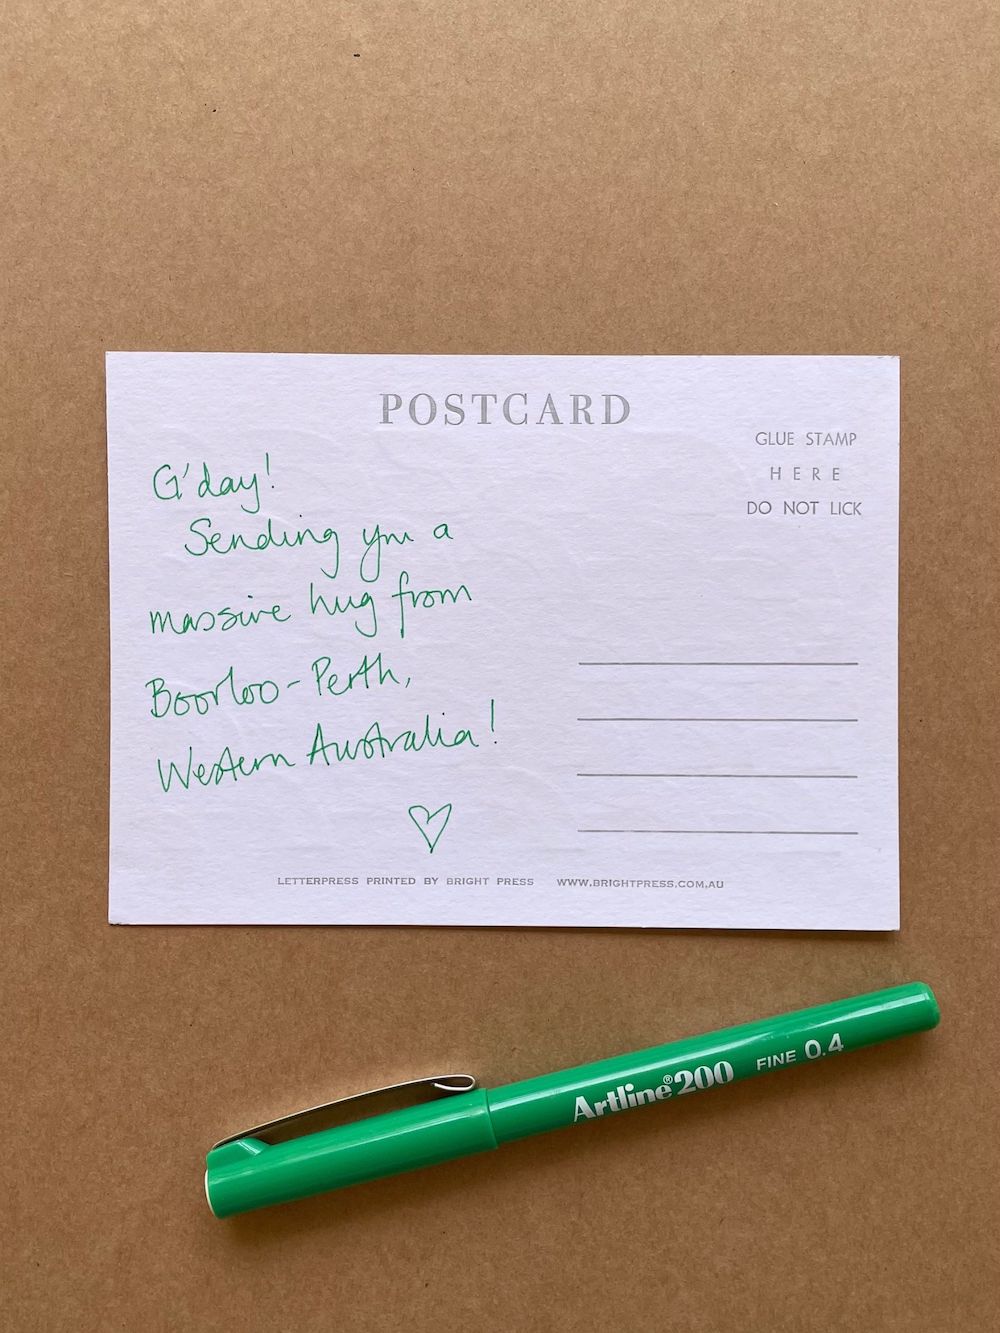 POSTCARD
GLUE STAMP
HERE
DO NOT LICK
G'day!
Sending you a
massive hug from
Boorloo-Perth,
Western Australia!
LETTERPRESS PRINTED BY BRIGHT PRESS WWW.BRIGHTPRESS.COM.AU
Artline®200 FINE 0.4